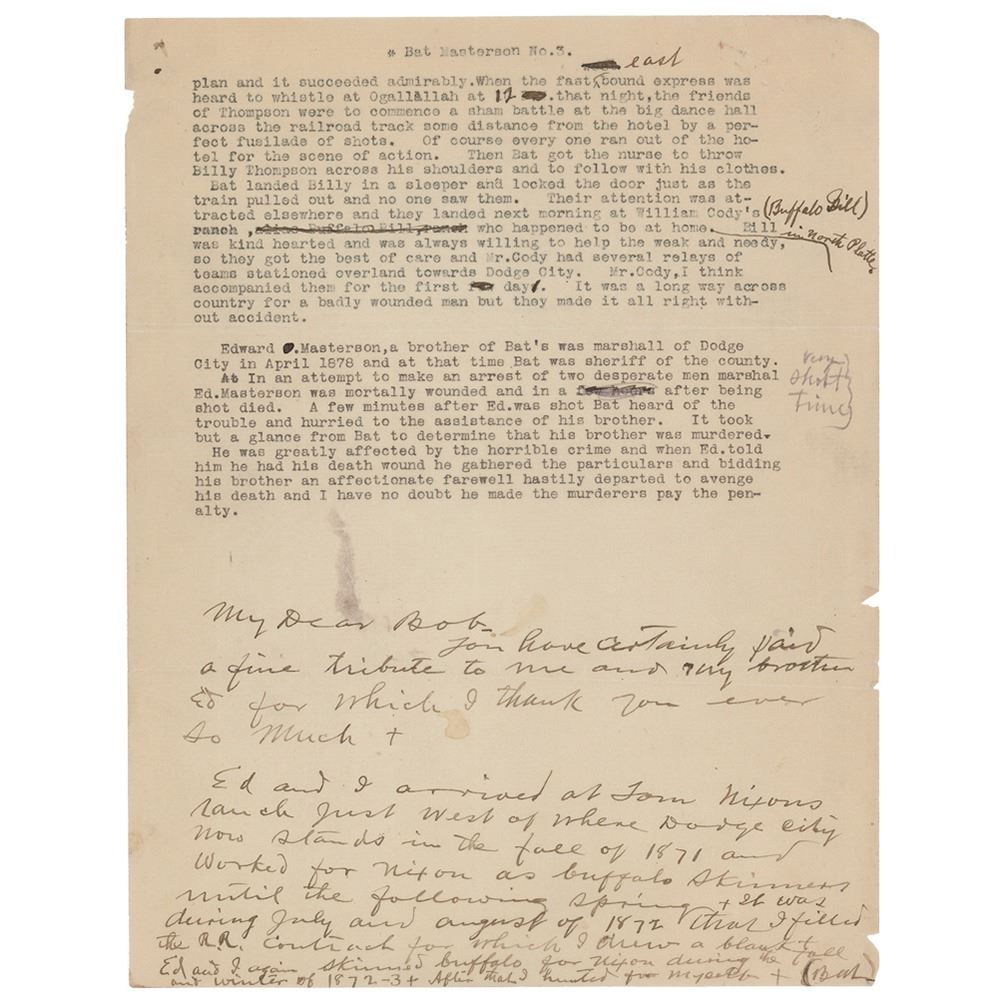 * Bat Masterson No.3.
east
plan and it succeeded admirably.When the fast bound express was
heard to whistle at Ogallàllah at 12 .that night,the friends
of Thompson were to commence a sham battle at the big dance hall
across the railroad track some distance from the hotel by a per-
fect fusilade of shots. Of course every one ran out of the ho-
tel for the scene of action. Then Bat got the nurse to throw
Billy Thompson across his shoulders and to follow with his clothes.
Bat landed Billy in a sleeper and locked the door just as the
train pulled out and no one saw them. Their attention was at-
tracted elsewhere and they landed next morning at William Cody's (Buffalo Bill)
ranch ,alias Buffalo Bill,ranch who happened to be at home. Bill in North Platte
was kind hearted and was always willing to help the weak and needy,
so they got the best of care and Mr.Cody had several relays of
teams stationed overland towards Dodge City. Mr.Cody,I think
accompanied them for the first day. It was a long way across
country for a badly wounded man but they made it all right with-
out accident.
Edward .Masterson,a brother of Bat's was marshall of Dodge
City in April 1878 and at that time Bat was sheriff of the county.
At In an attempt to make an arrest of two desperate men marshal
Ed.Masterson was mortally wounded and in a after being
very
short
time
shot died. A few minutes after Ed.was shot Bat heard of the
trouble and hurried to the assistance of his brother. It took
but a glance from Bat to determine that his brother was murdered.
He was greatly affected by the horrible crime and when Ed.told
him he had his death wound he gathered the particulars and bidding
his brother an affectionate farewell hastily departed to avenge
his death and I have no doubt he made the murderers pay the pen-
alty.
My Dear Bob-
You have certainly paid
a fine tribute to me and my brother
Ed for which I thank you ever
so much +
Ed and I arrived at Tom Nixons
ranch Just West of where Dodge city
Now stands in the fall of 1871 and
Worked for Nixon as buffalo skinners
until the following spring + It was
during July and august of 1872 that I filled
the R.R. Contract for which I drew a blank +
Ed and I again skinned buffalo for Nixon during the Fall
and winter of 1872-3 + After that I hunted for myself + (Bat)